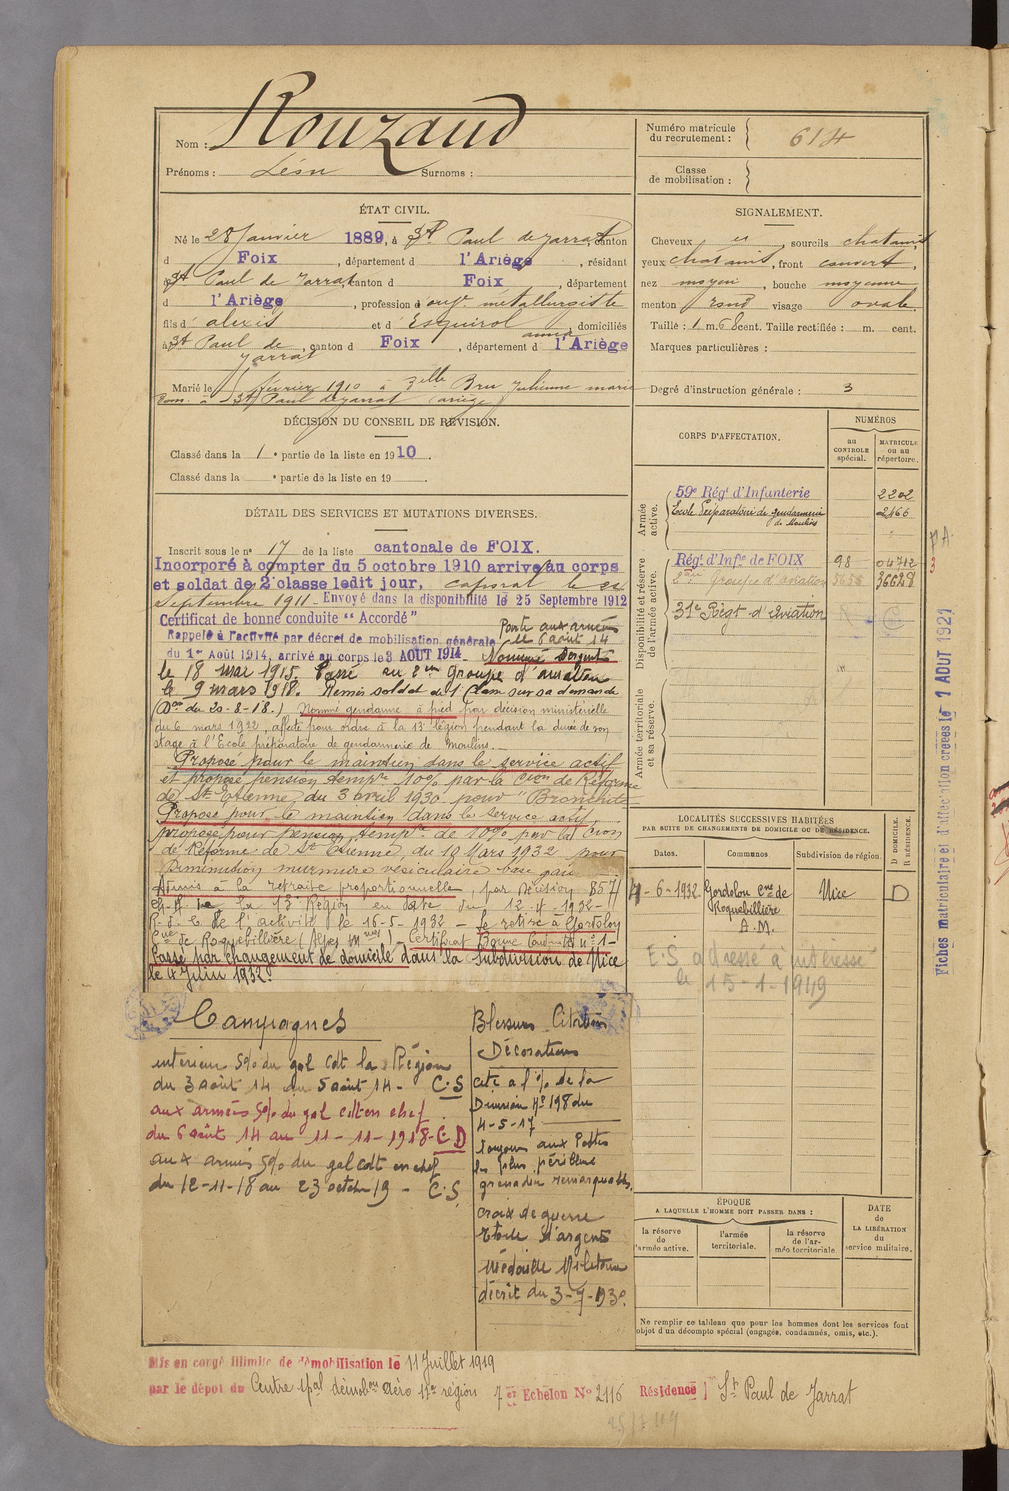 Nom : Rouzaud
Prénoms : Léon Surnoms :
Numéro matricule du recrutement : 614
Classe de mobilisation :
ÉTAT CIVIL.
Né le 28 Janvier 1889, à St Paul de Jarrat, canton
d Foix, département d l'Ariège, résidant
à St Paul de Jarrat canton d Foix, département
d l'Ariège, profession d ouvr métallurgiste
fils d' alexis et d' Esquirol anna domiciliés
à St Paul de Jarrat, canton d Foix, département d l'Ariège
Marié le février 1910 à Melle Bru Julienne marie
Dom. à St Paul de Jarrat (ariège)
SIGNALEMENT.
Cheveux et, sourcils chatains
yeux chatains, front couvert,
nez moyen, bouche moyenne
menton rond visage ovale
Taille : 1 m. 68 cent. Taille rectifiée : m. cent.
Marques particulières :
Degré d'instruction générale : 3
DÉCISION DU CONSEIL DE RÉVISION.
Classé dans la 1e partie de la liste en 1910.
Classé dans la e partie de la liste en 19 .
DÉTAIL DES SERVICES ET MUTATIONS DIVERSES.
Inscrit sous le n° 17 de la liste cantonale de FOIX.
Incorporé à compter du 5 octobre 1910 arrivé au corps
et soldat de 2e classe ledit jour, caporal le 24
Septembre 1911 - Envoyé dans la disponibilité le 25 Septembre 1912
Certificat de bonne conduite "Accordé"
Rappelé à l'activité par décret de mobilisation générale
du 1er Août 1914, arrivé au corps le 3 AOUT 1914
Parti aux armées le 6 août 14
Nommé Sergent
le 18 mai 1915. Passé au 2em groupe d'aviation
le 9 mars 1918. Remis soldat de 1 Classe sur sa demande
(Don du 20-8-18.) Nommé gendarme à pied par décision ministérielle
du 6 mars 1922, affecté pour ordre à la 13e légion pendant la durée de son
stage à l'École préparatoire de gendarmerie de Moulins.
Proposé pour le maintien dans le service actif
et proposé pension tempre 10% par la Cion de Réforme
de St Etienne, du 3 avril 1930 pour "Bronchite
Proposé pour le maintien dans le service actif,
proposé pour pension tempre de 10% par la Cion
de Réforme de St Etienne, du 10 Mars 1932 pour
Diminution murmure vésiculaire base gau
Admis à la retraite proportionnelle, par Décision 857/
la 13e Région en date du 12-4-1932 -
R. d. C. de l'activité le 16-5-1932 - Se retire à Gordolon
Cne de Roquebillière (Alpes Mmes) Certificat Bonne Conduite N° 1 -
Passé par changement de domicile dans la Subdivision de Nice
le 4 Juin 1932.
CORPS D'AFFECTATION.
NUMÉROS
au CONTROLE spécial.
MATRICULE ou au répertoire.
Armée active.
59e Régt d'Infanterie 2202
Ecole Préparatoire de gendarmerie de Moulins 2166
Disponibilité et réserve de l'armée active.
Régt d'Infie de FOIX 98 04712
2em Groupe d'aviation 36628
31e Régt d'Aviation
Armée territoriale et sa réserve.
LOCALITÉS SUCCESSIVES HABITÉES
PAR SUITE DE CHANGEMENTS DE DOMICILE OU DE RÉSIDENCE.
Dates. Communes Subdivision de région. D DOMICILE. R RÉSIDENCE.
4-6-1932. Gordolon Cne de Roquebillière A.M. Nice D
E.S adressé à intéressé
le 15-1-1949
Fiches matriculaire et d'affectation créées le 1 AOUT 1927
Campagnes
intérieur S/% du gal cdt la Région
du 3 août 14 au 5 août 14 - C.S
aux armées S/% du gal cdt en chef
du 6 août 14 au 11-11-1918 - C D
aux armées S/% du gal cdt en chef
du 12-11-18 au 23 octobre 19 - C.S
Blessures Citations
Décorations
cité à l'% de la
Division N° 198 du
4-5-17
Toujours aux Postes
les plus périlleux
grenadier remarquable.
croix de guerre
Etoile d'argent
Médaille Militaire
décret du 3-7-1930.
ÉPOQUE
A LAQUELLE L'HOMME DOIT PASSER DANS :
la réserve de l'armée active.
l'armée territoriale.
la réserve de l'armée territoriale.
DATE de LA LIBÉRATION du service militaire.
Ne remplir ce tableau que pour les hommes dont les services font
objet d'un décompte spécial (engagés, condamnés, omis, etc.).
Mis en congé illimité de démobilisation le 11 Juillet 1919
par le dépôt du Centre ppal démobon aéro 17e région 7e Echelon N° 2116 Résidence St Paul de Jarrat